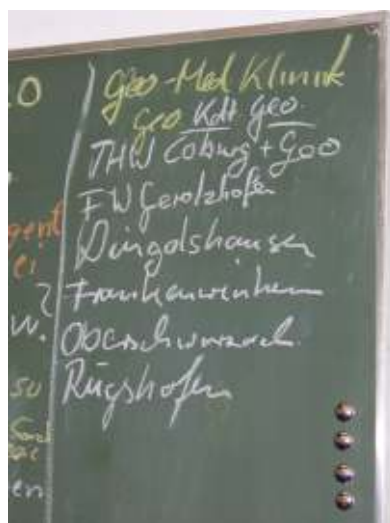 .0
Geo-Med Klinik
Geo Kdt Geo.
THW Coburg + Geo
FW Gerolzhofen
Dingolshausen
Frankenwinheim
Oberschwarzach
Rügshofen
gent
ei
?
w.
su
en